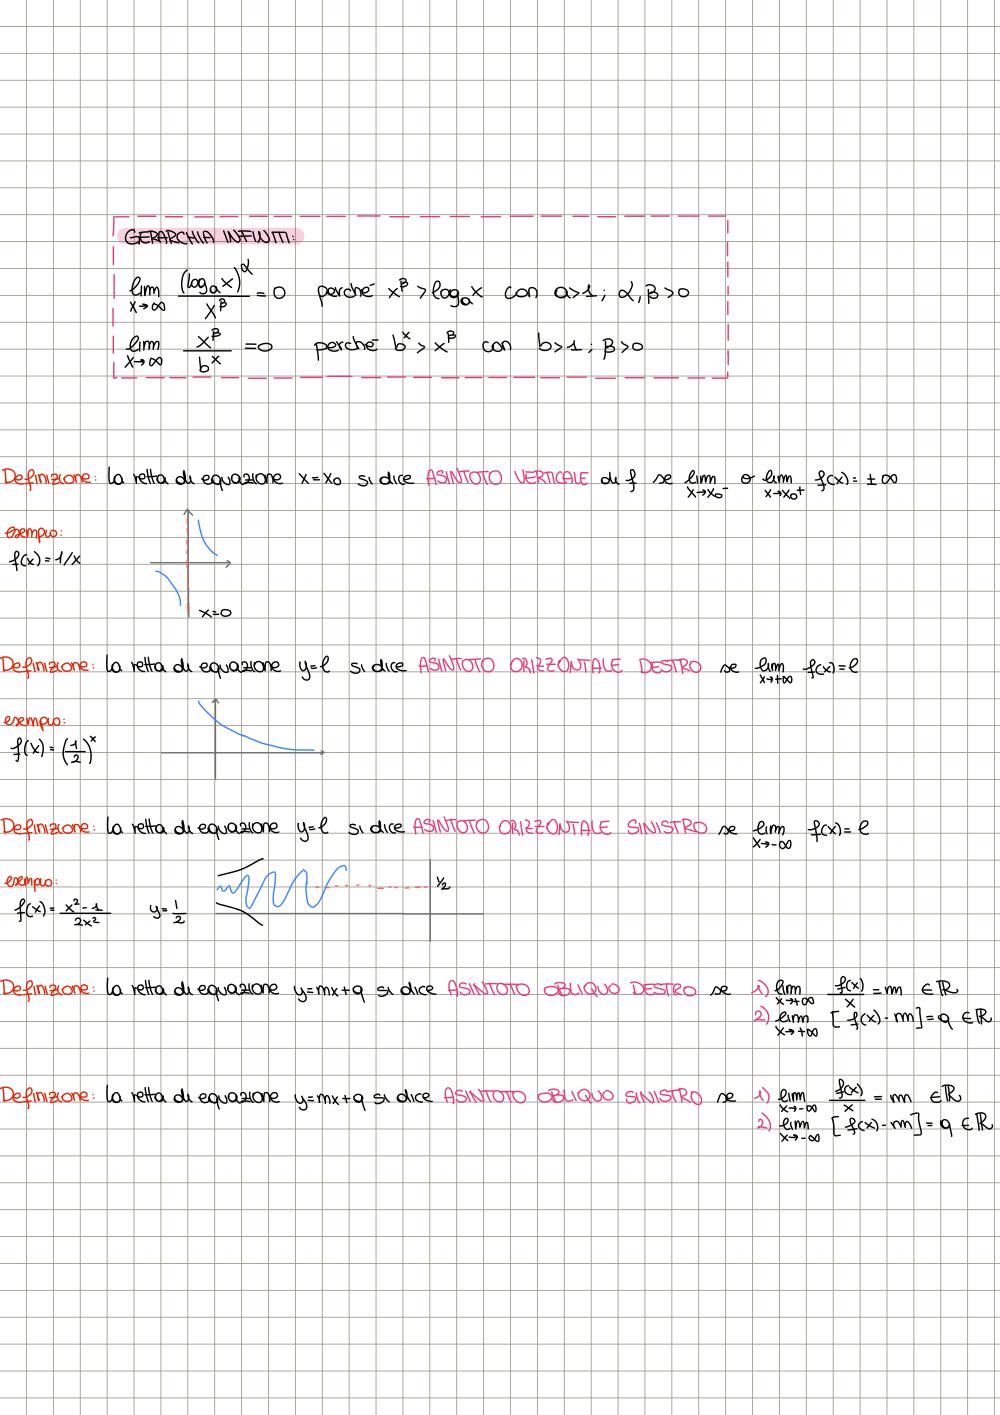 GERARCHIA INFINITI:
lim x→∞ (logₐx)^α / x^β = 0 perché x^β > logₐx con a>1; α,β>0
lim x→∞ x^β / b^x = 0 perché b^x > x^β con b>1; β>0
Definizione: la retta di equazione x=x₀ si dice ASINTOTO VERTICALE di f se lim x→x₀⁻ o lim x→x₀⁺ f(x)= ±∞
esempio:
f(x)=1/x
x=0
Definizione: la retta di equazione y=ℓ si dice ASINTOTO ORIZZONTALE DESTRO se lim x→+∞ f(x)=ℓ
esempio:
f(x)=(1/2)^x
Definizione: la retta di equazione y=ℓ si dice ASINTOTO ORIZZONTALE SINISTRO se lim x→-∞ f(x)=ℓ
esempio:
1/2
f(x)= x²-1 / 2x² y=1/2
Definizione: la retta di equazione y=mx+q si dice ASINTOTO OBLIQUO DESTRO se 1) lim x→+∞ f(x)/x = m ∈ℝ
2) lim x→+∞ [f(x)-m]=q ∈ℝ
Definizione: la retta di equazione y=mx+q si dice ASINTOTO OBLIQUO SINISTRO se 1) lim x→-∞ f(x)/x = m ∈ℝ
2) lim x→-∞ [f(x)-m]=q ∈ℝ